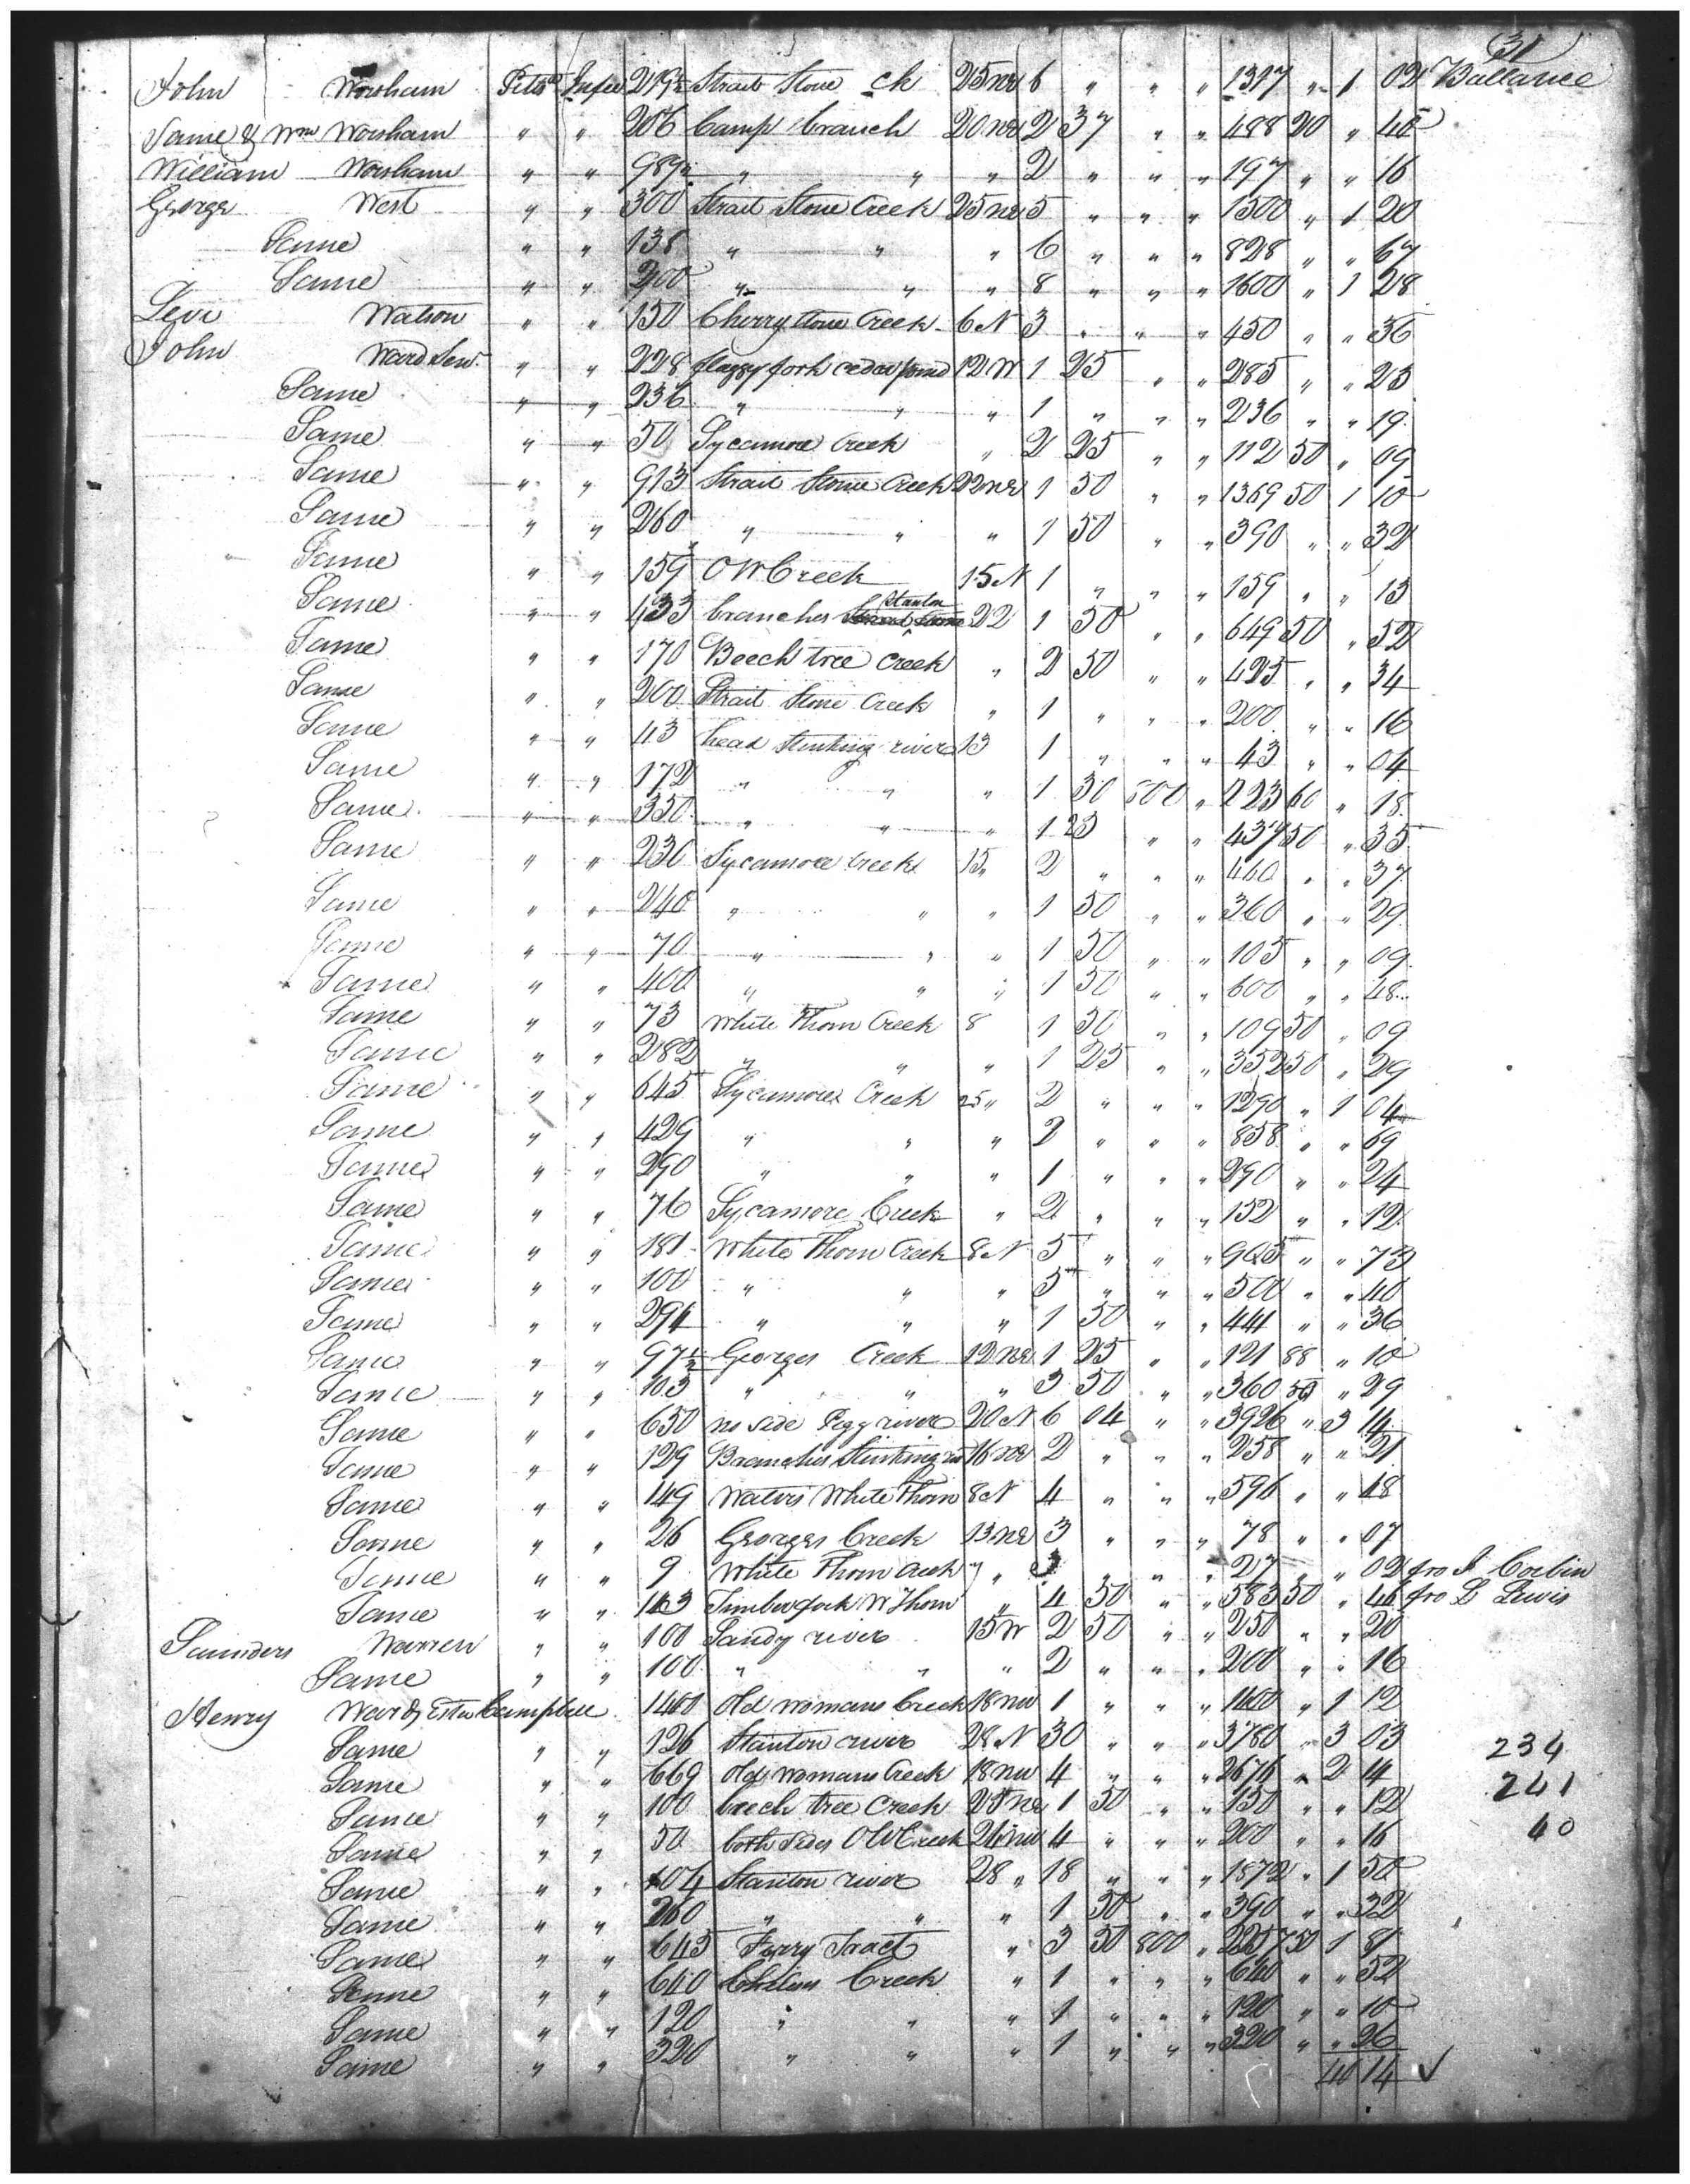 31
John Worsham Pitts " Infee 219½ Strait Stone Ck 25 NE 6 " " " 1317 " 1 02 Ballance
Same & Wm Worsham " " 206 Camp branch 20 NE 2 37 " " 488 20 " 40
William Worsham " " 98½ " " " 2 " " " 197 " " 16
George West " " 300 Strait Stone Creek 25 NE 5 " " " 1500 " 1 20
Same " " 138 " " " 6 " " " 828 " " 67
Same " " 200 " " " 8 " " " 1600 " 1 28
Levi Watson " " 150 Cherrystone Creek 6 N 3 " " " 450 " " 36
John Ward Sen. " " 228 flaggy fork cedar pond 12 W 1 25 " " 285 " " 23
Same " " 236 " " " 1 " " " 236 " " 19
Same " " 50 Sycamore Creek " 2 25 " " 112 50 " 09
Same " " 913 Strait Stone Creek 22 NE 1 50 " " 1369 50 1 10
Same " " 260 " " " 1 50 " " 390 " " 32
Same " " 159 O W Creek 15 N 1 " " " 159 " " 13
Same " " 433 branches Stanton 22 1 50 " " 649 50 " 52
Same " " 170 Beech tree Creek " 2 50 " " 425 " " 34
Same " " 200 Strait Stone Creek " 1 " " " 200 " " 16
Same " " 43 head Stinking river 13 1 " " " 43 " " 04
Same " " 172 " " " 1 30 500 " 223 60 " 18
Same " " 350 " " " 1 25 " " 437 50 " 35
Same " " 230 Sycamore Creek 15 " 2 " " " 460 " " 37
Same " " 240 " " " 1 50 " " 360 " " 29
Same " " 70 " " " 1 50 " " 105 " " 09
Same " " 400 " " " 1 50 " " 600 " " 48
Same " " 73 White Thorn Creek 8 1 50 " " 109 50 " 09
Same " " 282 " " " 1 25 " " 352 50 " 29
Same " " 645 Sycamore Creek 25 " 2 " " " 1290 " 1 04
Same " " 429 " " " 2 " " " 858 " " 69
Same " " 290 " " " 1 " " " 290 " " 24
Same " " 76 Sycamore Creek " 2 " " " 152 " " 12
Same " " 181 White Thorn Creek 8 N 5 " " " 905 " " 73
Same " " 100 " " " 5 " " " 500 " " 40
Same " " 294 " " " 1 50 " " 441 " " 36
Same " " 97½ Georges Creek 12 NE 1 25 " " 121 88 " 10
Same " " 103 " " " 3 50 " " 360 50 " 29
Same " " 650 no side Pigg river 20 N 6 04 " " 3926 " 3 14
Same " " 129 Branches Stinking riv 16 NE 2 " " " 258 " " 21
Same " " 149 Waters White Thorn 8 N 4 " " " 596 " " 48
Same " " 26 Georges Creek 13 NE 3 " " " 78 " " 07
Same " " 9 White Thorn Creek " " 3 " " " 27 " " 02 fro J Corbin
Same " " 143 Timber fork W Thorn " 4 50 " " 583 50 " 46 fro L Lewis
Saunders Warren " " 100 Sandy river 15 W 2 50 " " 250 " " 20
Same " " 100 " " " 2 " " " 200 " " 16
Henry Ward, Estn Campbell 1401 Old Womans Creek 18 NW 1 " " " 1400 " 1 12
Same " " 126 Stanton river 28 N 30 " " " 3780 " 3 03
234
Same " " 669 Old Womans Creek 18 NW 4 " " " 2676 " 2 14
241
Same " " 100 beech tree Creek 25 NE 1 50 " " 150 " " 12
40
Same " " 50 both sides O W Creek 26 NW 4 " " " 200 " " 16
Same " " 104 Stanton river 28 " 18 " " " 1872 " 1 50
Same " " 260 " " " 1 50 " " 390 " " 32
Same " " 645 Ferry Tract " 3 50 800 " 2257 50 1 81
Same " " 640 Childrey Creek " 1 " " " 640 " " 52
Same " " 120 " " " 1 " " " 120 " " 10
Same " " 320 " " " 1 " " " 320 " " 26
Same " " 40 14 ✓